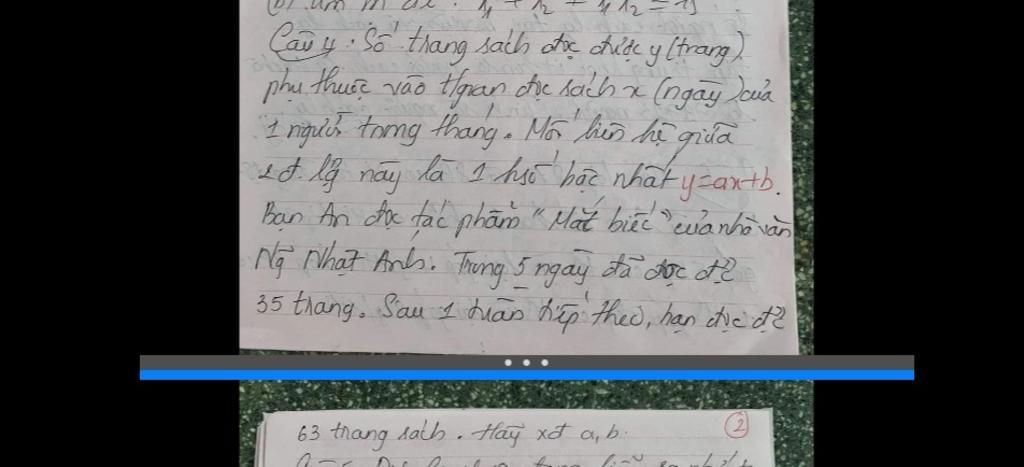 Câu 4. Số trang sách đọc được y (trang)
phụ thuộc vào t/gian đọc sách x (ngày) của
1 người trong tháng. Mối liên hệ giữa
2 đ. lg này là 1 hsố bậc nhất y=ax+b.
Bạn An đọc tác phẩm "Mắt biếc" của nhà văn
Ng̃ Nhật Ánh. Trong 5 ngày đã đọc đc
35 trang. Sau 1 tuần tiếp theo, bạn đọc đc
63 trang sách. Hãy xđ a, b.
2